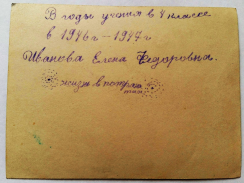 В годы учения в 4 классе
в 1946 г – 1947 г
Иванова Елена Федоровна.
жизнь в